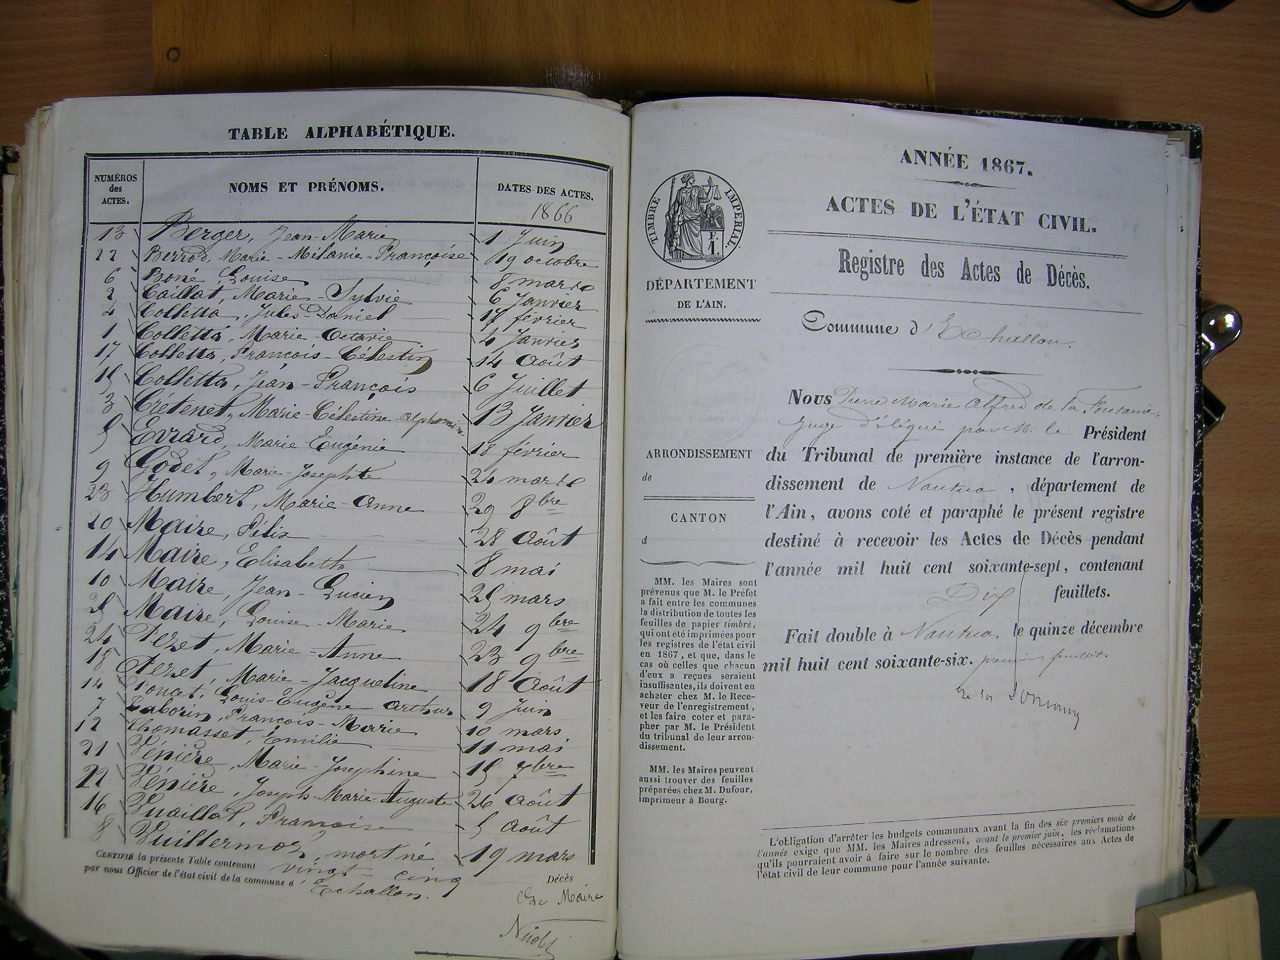 TABLE ALPHABÉTIQUE.
NUMÉROS des ACTES. NOMS ET PRÉNOMS. DATES DES ACTES.
1866
13 Berger, Jean-Marie 1 Juin
22 Berrod, Marie-Mélanie-Françoise 19 octobre
6 Boné Louise 8 mars
2 Caillat, Marie-Sylvie 6 Janvier
4 Colletta, Jules-Daniel 17 février
1 Colletta, Marie-Octavie 4 Janvier
17 Colletta, François-Célestin 14 Août
15 Colletta, Jean-François 6 Juillet
3 Crétenet, Marie-Célestine Alphonsine 13 Janvier
5 Evrard, Marie Eugénie 18 février
9 Godet, Marie-Josephte 24 mars
23 Humbert, Marie-Anne 29 8bre
20 Maire, Félix 28 Août
Maire, Elisabeth 8 mai
10 Maire, Jean-Lucien 25 mars
Maire, Louise-Marie 24 9bre
24 Perret, Marie-Anne 23 9bre
18 Perret, Marie-Jacqueline 18 Août
14 Poncet, Louis-Eugène Arthur 9 Juin
7 Taborin, François-Marie 10 mars
12 Thomasset, Emilie 11 mai
21 Vénière, Marie-Josephine 18 7bre
Vénière, Joseph-Marie-Auguste 26 Août
16 Vuaillat, Françoise 5 Août
8 Vuillermoz, mort né 19 mars
CERTIFIÉ la présente Table contenant vingt-cinq Décès
par nous Officier de l'état civil de la commune d'Echallon.
Le Maire
ANNÉE 1867.
ACTES DE L'ÉTAT CIVIL.
Registre des Actes de Décès.
TIMBRE IMPÉRIAL
DÉPARTEMENT
DE L'AIN.
Commune d'Echallon.
ARRONDISSEMENT
de
CANTON
d
MM. les Maires sont
prévenus que M. le Préfet
a fait entre les communes
la distribution de toutes les
feuilles de papier timbré,
qui ont été imprimées pour
les registres de l'état civil
en 1867, et que, dans le
cas où celles que chacun
d'eux a reçues seraient
insuffisantes, ils doivent en
acheter chez M. le Rece-
veur de l'enregistrement,
et les faire coter et para-
pher par M. le Président
du tribunal de leur arron-
dissement.
MM. les Maires peuvent
aussi trouver des feuilles
préparées chez M. Dufour,
imprimeur à Bourg.
Nous Pierre Marie Alfred de la
Juge délégué par M. le Président
du Tribunal de première instance de l'arron-
dissement de Nantua, département de
l'Ain, avons coté et paraphé le présent registre
destiné à recevoir les Actes de Décès pendant
l'année mil huit cent soixante-sept, contenant
Dix feuillets.
Fait double à Nantua, le quinze décembre
mil huit cent soixante-six. premier feuillet
L'obligation d'arrêter les budgets communaux avant la fin des six premiers mois de
l'année exige que MM. les Maires adressent, avant le premier juin, les réclamations
qu'ils pourraient avoir à faire sur le nombre des feuilles nécessaires aux Actes de
l'état civil de leur commune pour l'année suivante.